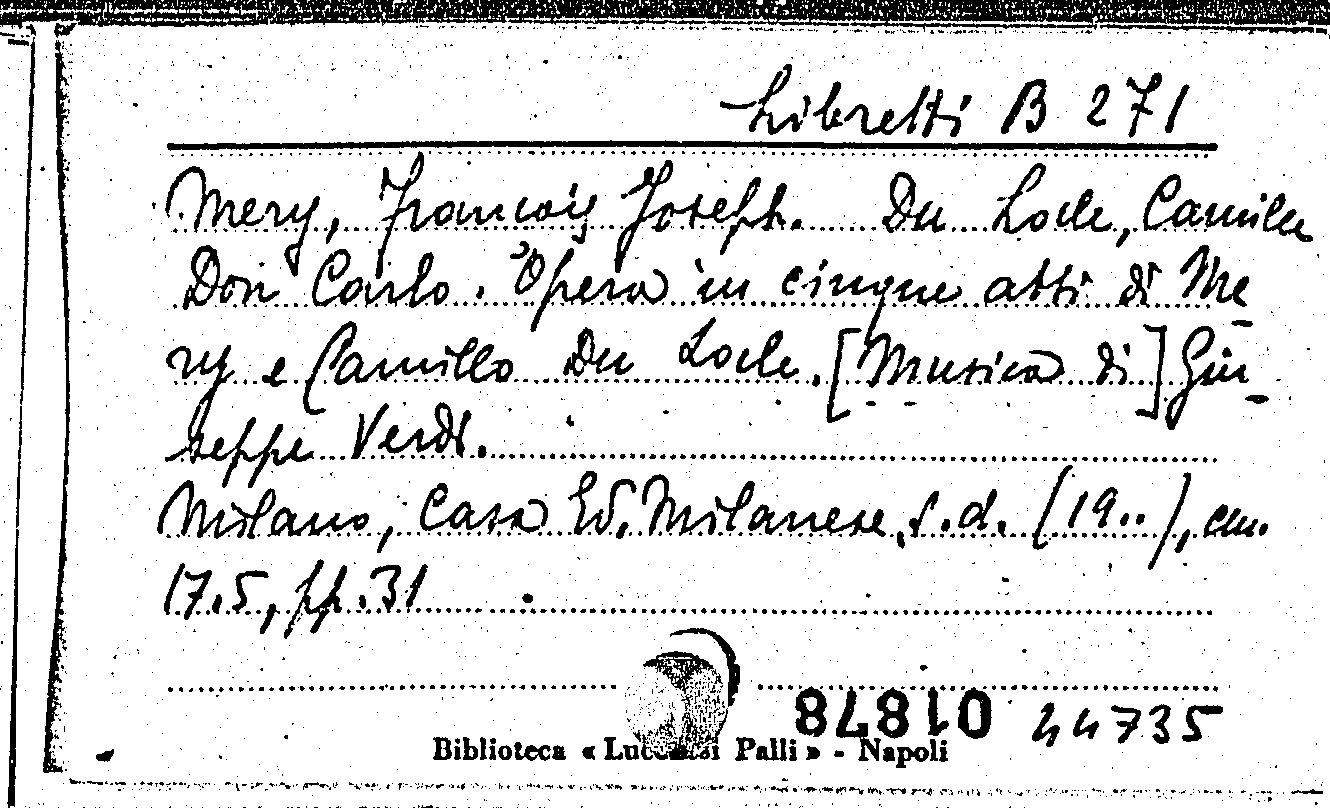 Libretti B 271
Mery, François Joseph. Du Locle, Camille
Don Carlo. Opera in cinque atti di Me
ry e Camillo Du Locle. [Musica di] Giu-
seppe Verdi.
Milano, Casa Ed. Milanese, s.d. (19..), cm.
17.5, pp. 31
01878 44735
Biblioteca « Lucchesi Palli » - Napoli